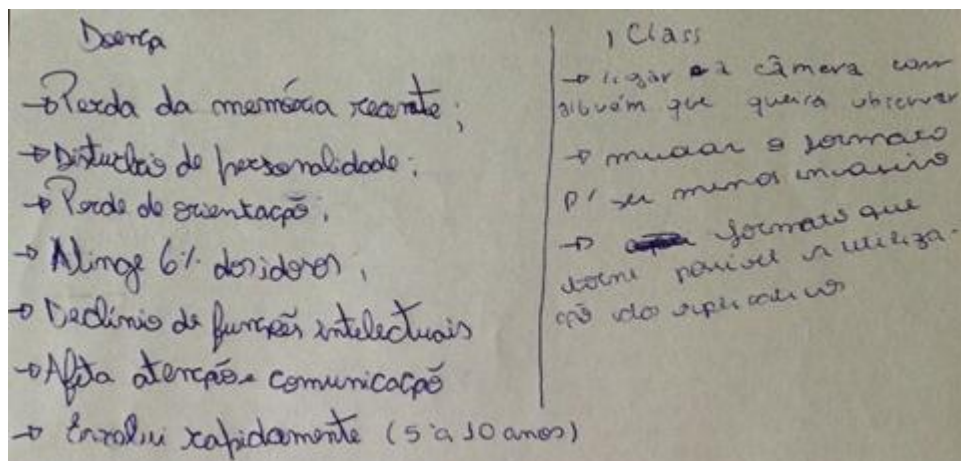 Doença
→ Perda da memória recente;
→ Distúrbio de personalidade;
→ Perda de orientação;
→ Atinge 6% dos idosos;
→ Declínio de funções intelectuais
→ Afeta atenção e comunicação
→ Evolui rapidamente (5 a 10 anos)
Class
→ ligar a câmera com
alguém que queira observar
→ mudar o formato
p/ ser menos invasivo
→ formato que
torne possível a utiliza-
ção do aplicativo